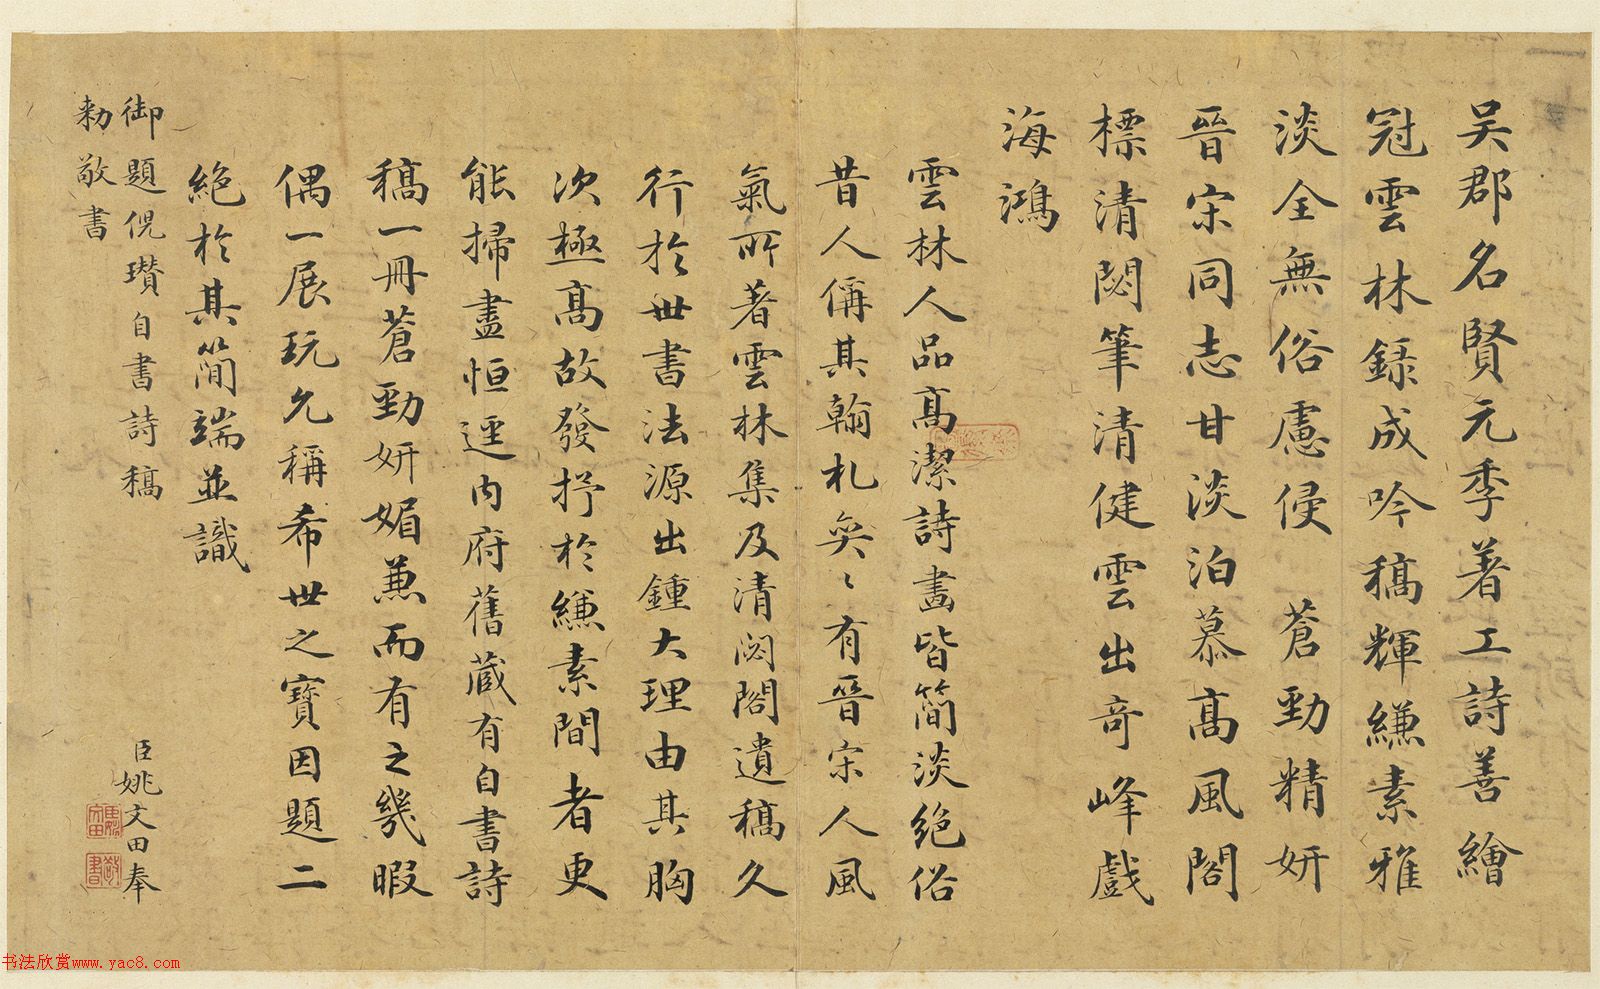 吳郡名賢元季著工詩善繪
冠雲林錄成吟稿輝縑素雅
淡全無俗慮侵 蒼勁精妍
晉宋同志甘淡泊慕高風閣
標清閟筆清健雲出奇峰戲
海鴻
雲林人品高潔詩畫皆簡淡絕俗
昔人偁其翰札奕〻有晉宋人風
氣所著雲林集及清閟閣遺稿久
行於世書法源出鍾大理由其胸
次極高故發抒於縑素間者更
能掃盡恒逕內府舊藏有自書詩
稿一冊蒼勁妍媚兼而有之幾暇
偶一展玩允稱希世之寶因題二
絕於其簡端並識
御題倪瓚自書詩稿
臣姚文田奉
勑敬書
书法欣赏www.yac8.com